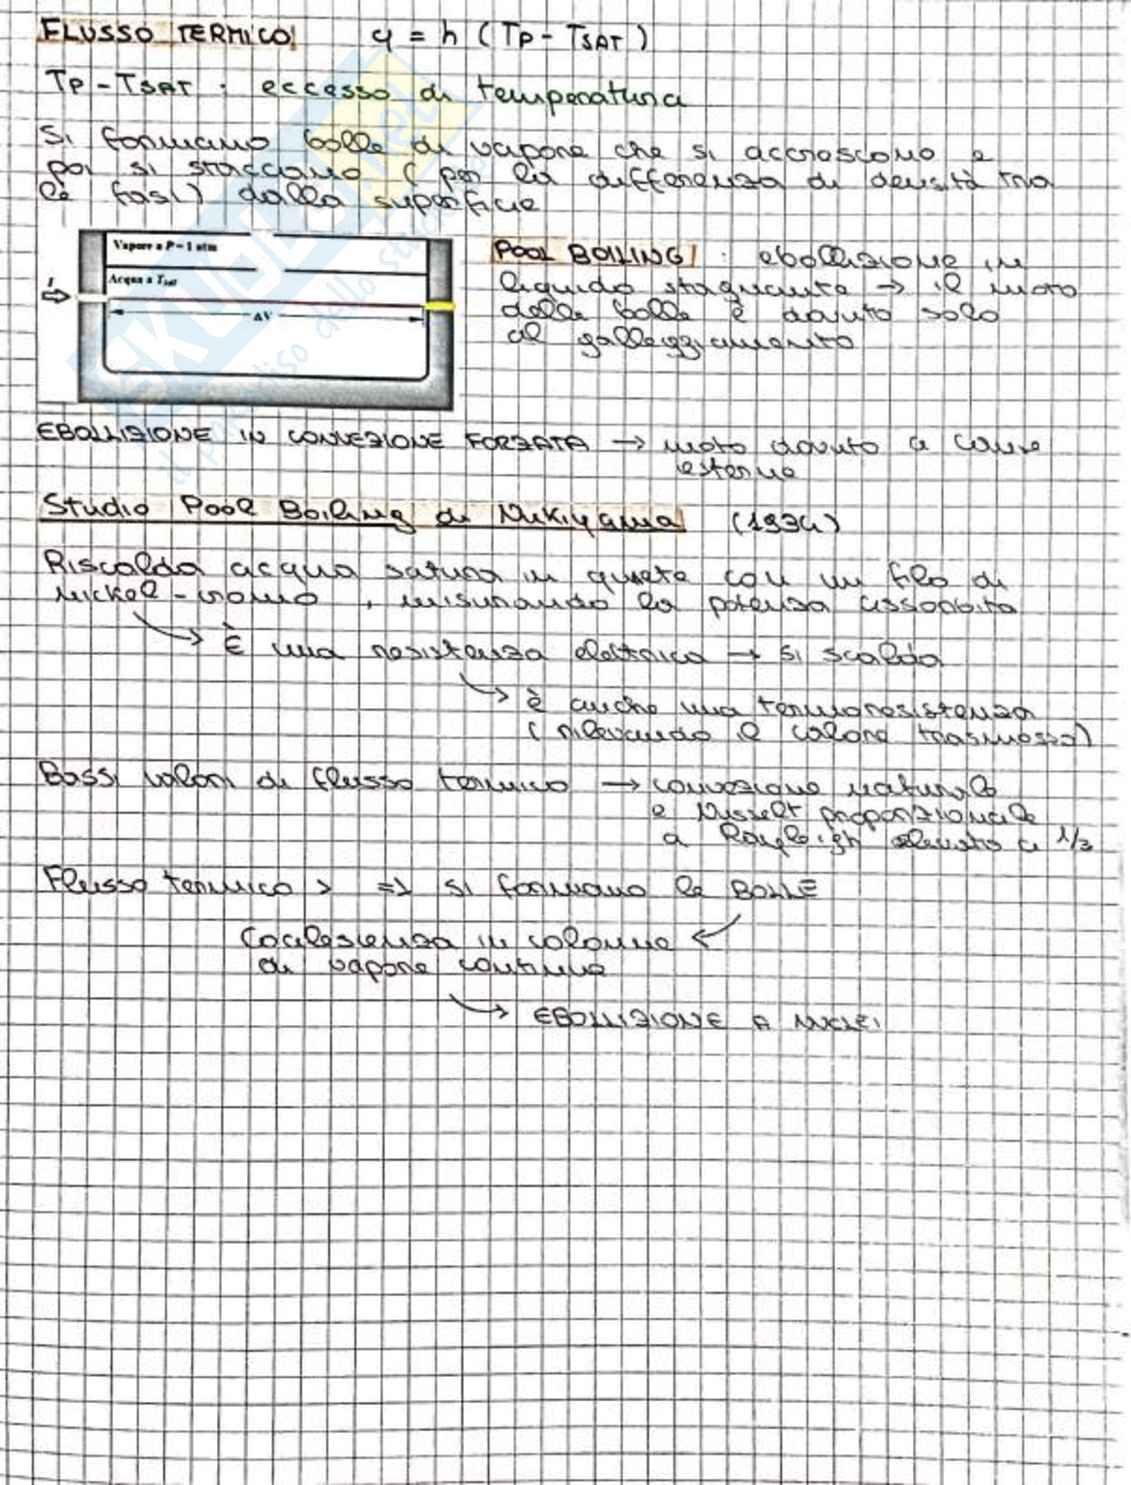 FLUSSO TERMICO q = h (TP - TSAT)
TP - TSAT : eccesso di temperatura
Si formano bolle di vapore che si accrescono e
poi si staccano (per la differenza di densità tra
le fasi) dalla superficie
Vapore a P = 1 atm
Acqua a Tsat
I
ΔV
POOL BOILING : ebollizione in
liquido stagnante → il moto
delle bolle è dovuto solo
al galleggiamento
EBOLLIZIONE IN CONVEZIONE FORZATA → moto dovuto a cause
esterne
Studio Pool Boiling di Nukiyama (1934)
Riscalda acqua satura in quiete con un filo di
nickel-cromo, misurando la potenza assorbita
→ È una resistenza elettrica → si scalda
→ è anche una termoresistenza
(rilevando il calore trasmesso)
Bassi valori di flusso termico → convezione naturale
e Nusselt proporzionale
a Rayleigh elevato a 1/3
Flusso termico > => si formano le BOLLE
Coalescenza in colonne
di vapore continue
→ EBOLLIZIONE A NUCLEI
SKUOLA.net
il paradiso dello studente